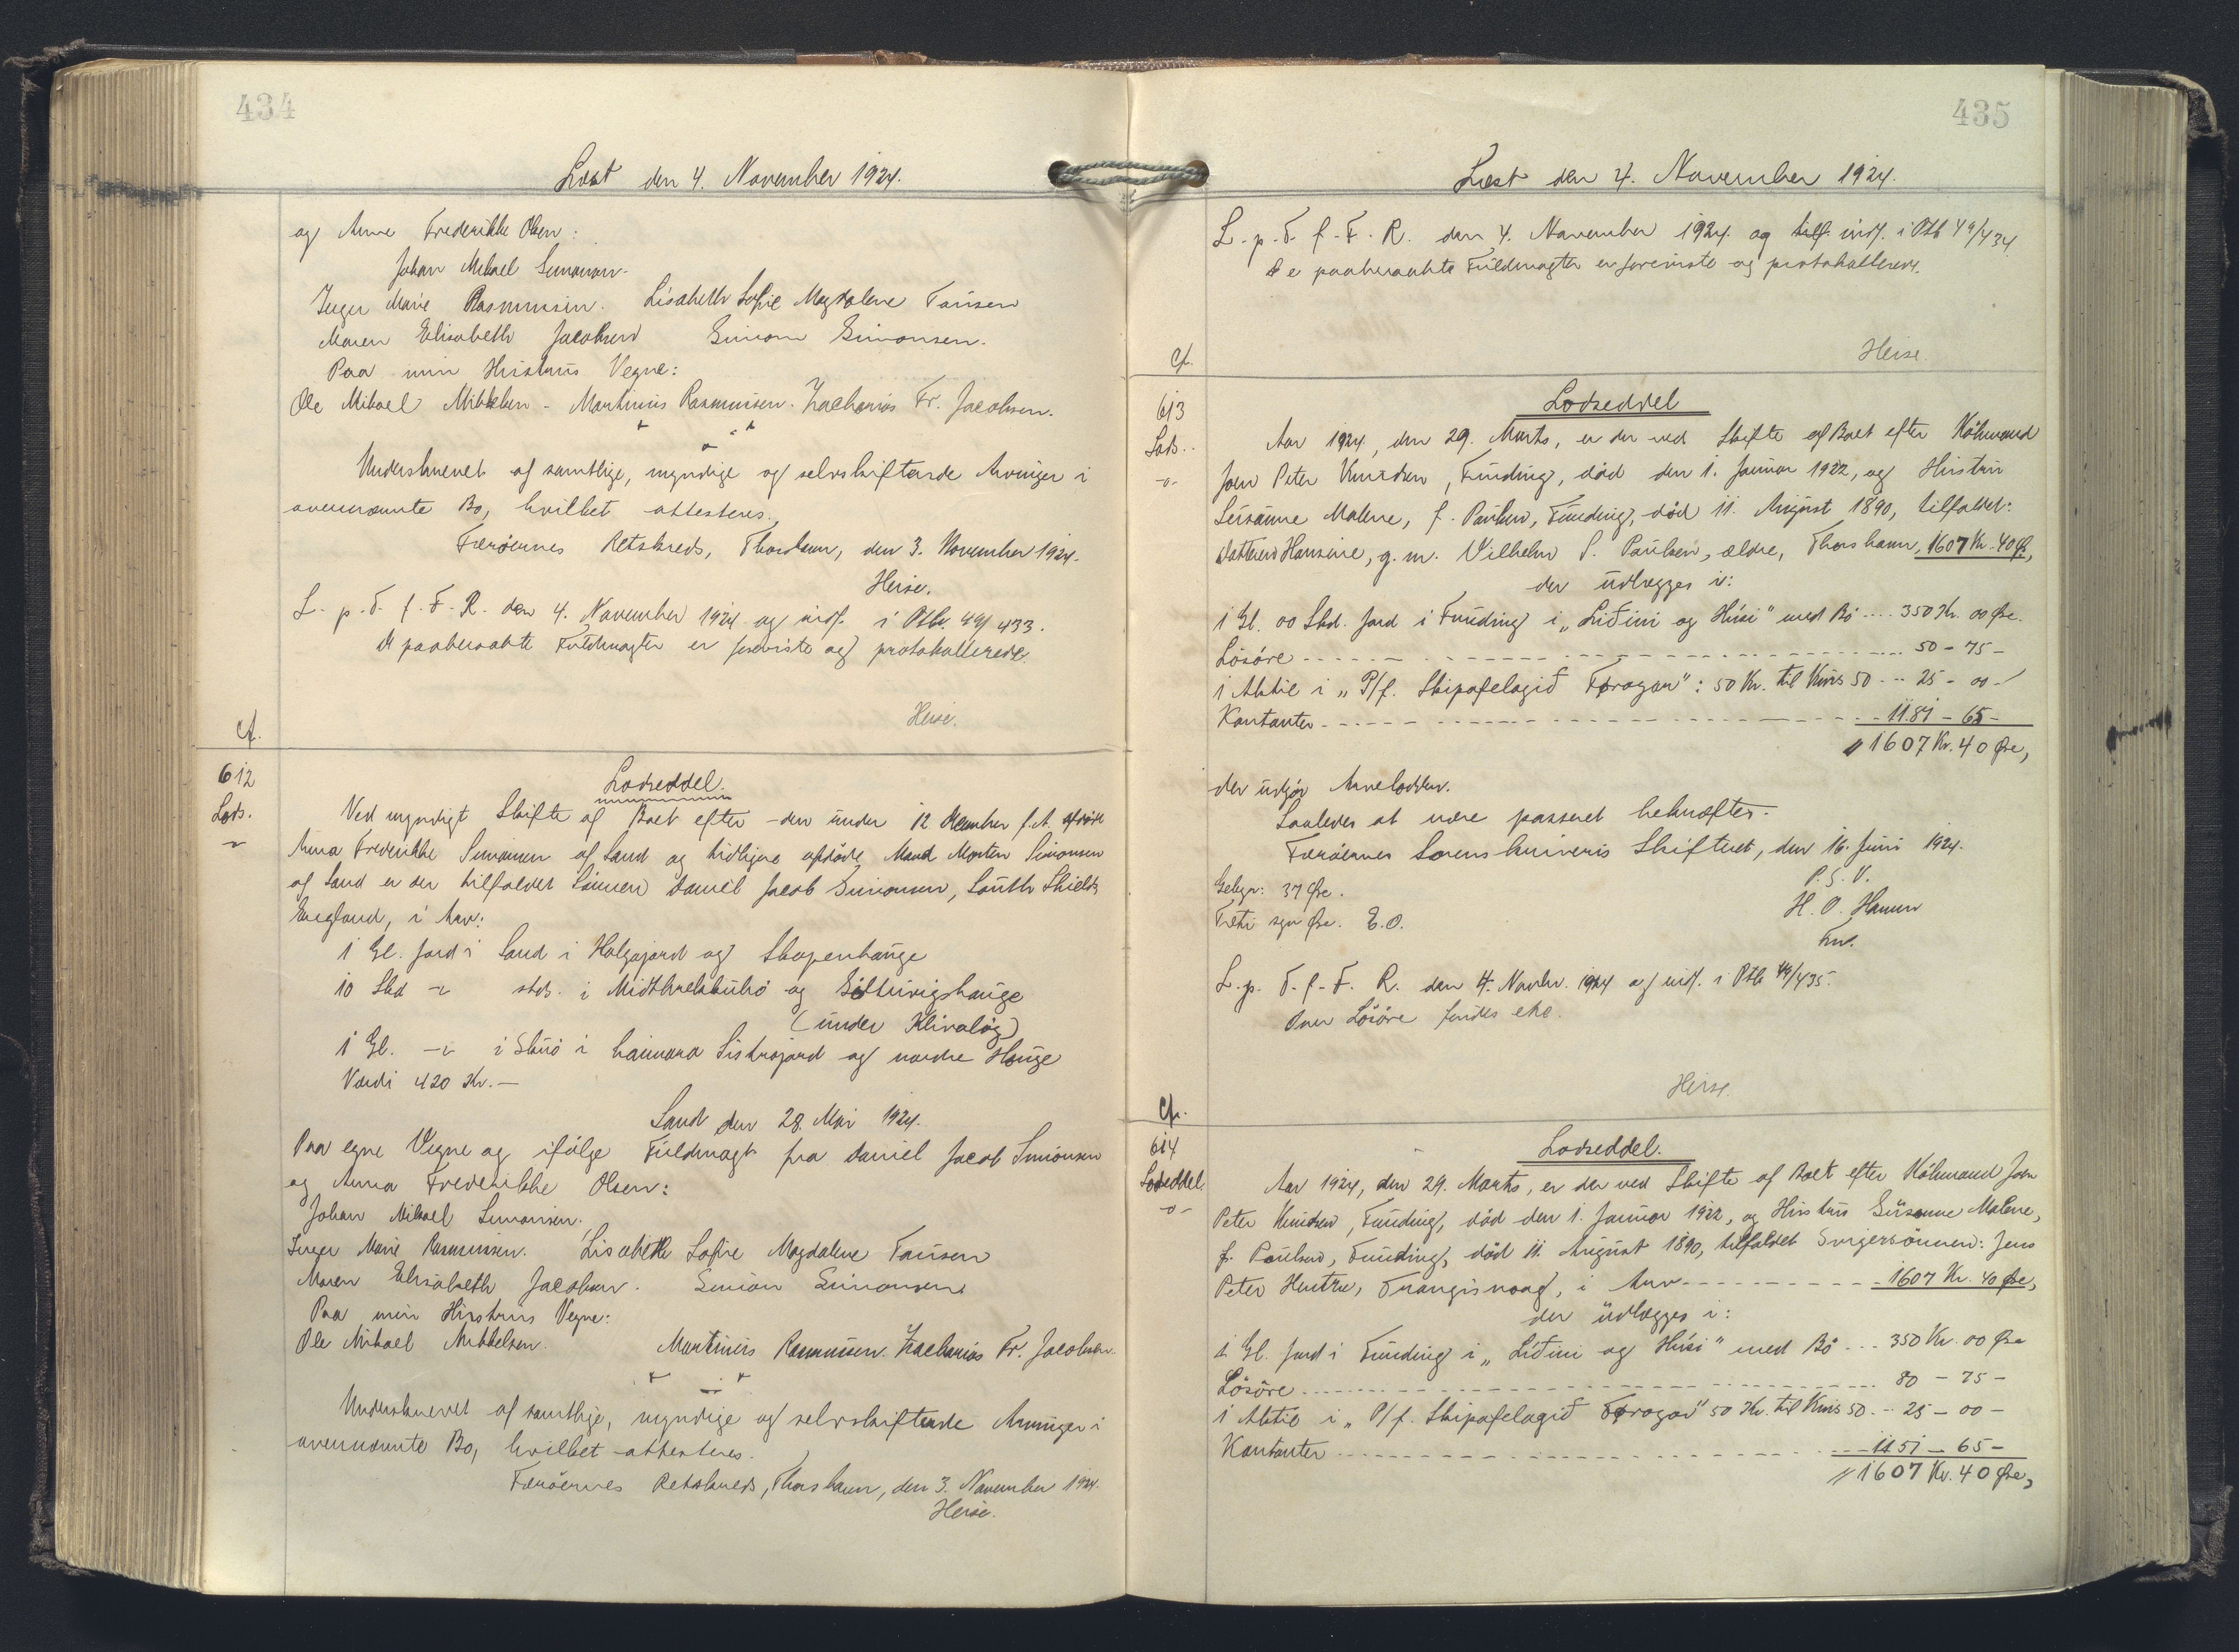 434
Læst den 4. November 1924.
og Anna Frederikke Olsen:
Johan Mikael Simonsen.
Inger Marie Rasmussen. Lisabeth Sofie Magdalene Tausen
Maren Elisabeth Jacobsen Simon Simonsen.
Paa min Hustrus Vegne:
Ole Mikael Mikkelsen - Martinus Rasmussen. Zacharias Fr. Jacobsen.
Underskrevet af samtlige, myndige og selvskiftende Arvinger i
ovennævnte Bo, hvilket attesteres.
Færöernes Retskreds, Thorshavn, den 3. November 1924.
Heise.
L. p. T. f. F. R. den 4. November 1924 og indf. i Ptb. 49/433.
De paaberaabte Fuldmagter er foreviste og protokollerede.
Heise.
Cf.
612
Lods.
Lodseddel.
Ved myndigt Skifte af Boet efter den under 12 December f.A. afdöde
Anna Frederikke Simonsen af Sand og tidligere afdöde Mand Morten Simonsen
af Sand er der tilfaldet Sönnen Daniel Jacob Simonsen, South Shields
England, i Arv:
1 Gl. Jord i Sand i Halgajord og Skapenhauge
10 Skd - stds. i Midthrekkuhö og Göttuvigshauge
(under Klivalög)
1 Gl. - i Skuö i haimara Sistrajord og nordre Hauge
Værdi 420 Kr. -
Sand den 28. Mai 1924.
Paa egne Vegne og ifölge Fuldmagt fra Daniel Jacob Simonsen
og Anna Frederikke Olsen:
Johan Mikael Simonsen.
Inger Marie Rasmussen. Lisabeth Sofie Magdalene Tausen
Maren Elisabeth Jacobsen. Simon Simonsen
Paa min Hustrus Vegne:
Ole Mikael Mikkelsen. Martinus Rasmussen. Zacharias Fr. Jacobsen.
Underskrevet af samtlige, myndige og selvskiftende Arvinger i
ovennævnte Bo, hvilket attesteres.
Færöernes Retskreds, Thorshavn, den 3. November 1924.
Heise.
435
Læst den 4. November 1924.
L. p. T. f. F. R. den 4. November 1924 og indf. i Ptb 49/434
De paaberaabte Fuldmagter er foreviste og protokollerede.
Heise.
Cf.
613
Lods..
-o-
Lodseddel
Aar 1924, den 29. Marts, er der ved Skifte af Boet efter Köbmand
Joen Peter Knudsen, Funding, död den 1. Januar 1922, og Hustru
Susanne Malene, f. Poulsen, Funding, död 11. August 1890, tilfaldet:
Datteren Hansine, g. m. Vilhelm S. Poulsen, ældre, Thorshavn, 1607 Kr. 40 Ø.,
der udlægges i:
1 Gl. 00 Skd. Jord i Funding i "Liðini og Húsi" med Bö .... 350 Kr. 00 Øre.
Lösöre ... 50 - 75 -
1 Aktie i "P/f. Skipafelagið Føroyar": 50 Kr. til Kurs 50 ... 25 - 00 -
Kontanter ... 1181 - 65 -
1607 Kr. 40 Øre,
der udgör Arvelodden.
Saaledes at være passeret bekræftes.
Færöernes Sorenskriveris Skifteret, den 16. Juni 1924.
P. S. V.
Gebyr: 37 Øre.
H. O. Hansen
Treti syv Øre. E.O.
Fm.
L. p. T. f. F. R. den 4. Novbr. 1924 og indf. i Ptb 49/435.
Over Lösöre findes eke.
Heise.
Cfr.
614
Lodseddel
-o-
Lodseddel.
Aar 1924, den 29. Marts, er der ved Skifte af Boet efter Köbmand Joen
Peter Knudsen, Funding, död den 1. Januar 1922, og Hustrus Susanne Malene,
f. Poulsen, Funding, död 11. August 1890, tilfaldet Svigersönnen: Jens
Peter Hentze, Trangisvaag, i Arv ... 1607 Kr. 40 Øre,
der udlægges i:
1 Gl. Jord i Funding i "Liðini og Húsi" med Bö ... 350 Kr. 00 Øre
Lösöre ... 80 - 75 -
1 Aktie i "P/f. Skipafelagið Føroyar" 50 Kr. til Kurs 50 ... 25 - 00 -
Kontanter ... 1151 - 65 -
1607 Kr. 40 Øre,